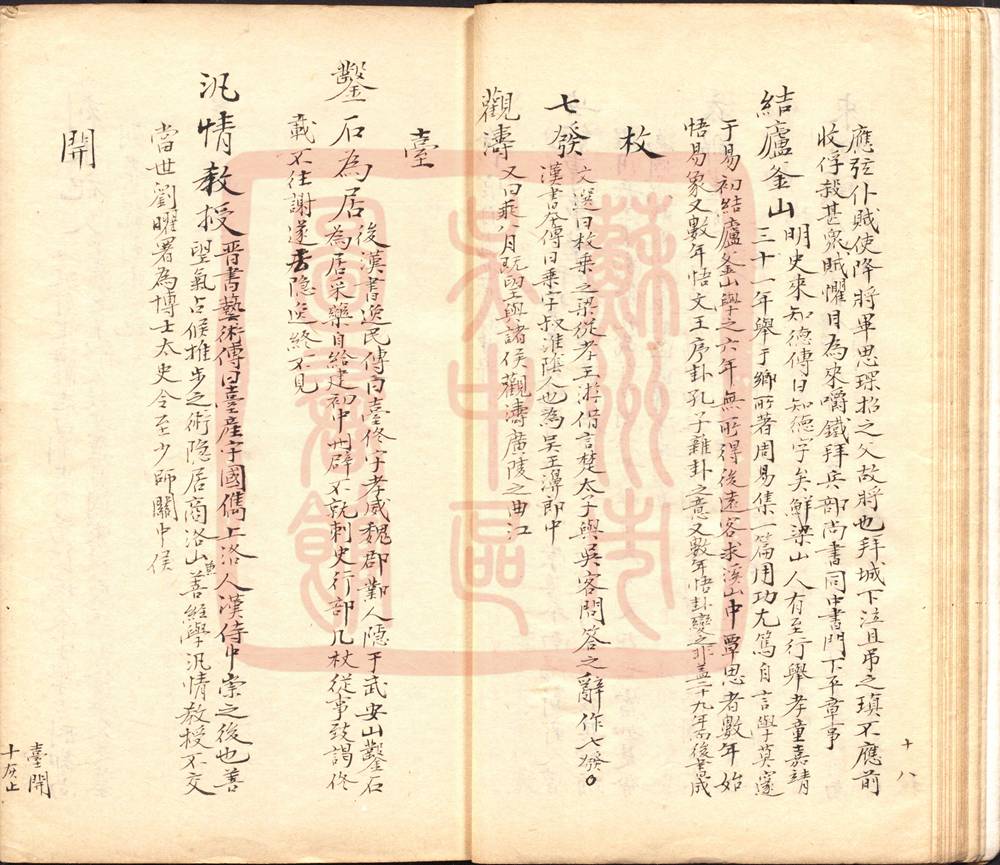 應弦仆賊使降將軍思琛招之父故將也拜城下泣且弔之瑱不應前
收俘殺甚衆賊懼目為來嚼鐵拜兵部尚書同中書門下平章事
結廬釜山明史來知德傳曰知德字矣鮮梁山人有至行舉孝童嘉靖
三十一年舉于鄉所著周易集一篇用功尤篤自言學莫邃
于易初結廬釜山學之六年無所得後遠客求溪山中覃思者數年始
悟易象又數年悟文王序卦孔子雜卦之意又數年悟卦變之非盖二十九年而後書成
枚
七發文選曰枚乘之梁從孝王游借言楚太子與吳客問答之辭作七發
漢書本傳曰乘字叔淮陰人也為吳王濞郎中
觀濤又曰乘八月既望與諸侯觀濤廣陵之曲江
臺
鑿石為居後漢書逸民傳曰臺佟字孝威魏郡鄴人隱于武安山鑿石
為居采藥自給建初中州辟不就刺史行部几杖從事致謁佟
載不往謝遂去隐逸終不見
汎情教授晋書藝術傳曰臺産字國儁上洛人漢侍中崇之後也善
望氣占候推步之術隐居商洛山兼善經學汎情教授不交
當世劉曜署為博士太史令至少師關中侯
開
臺開
十灰止
十八
蘇州市
吴中區
圖書館